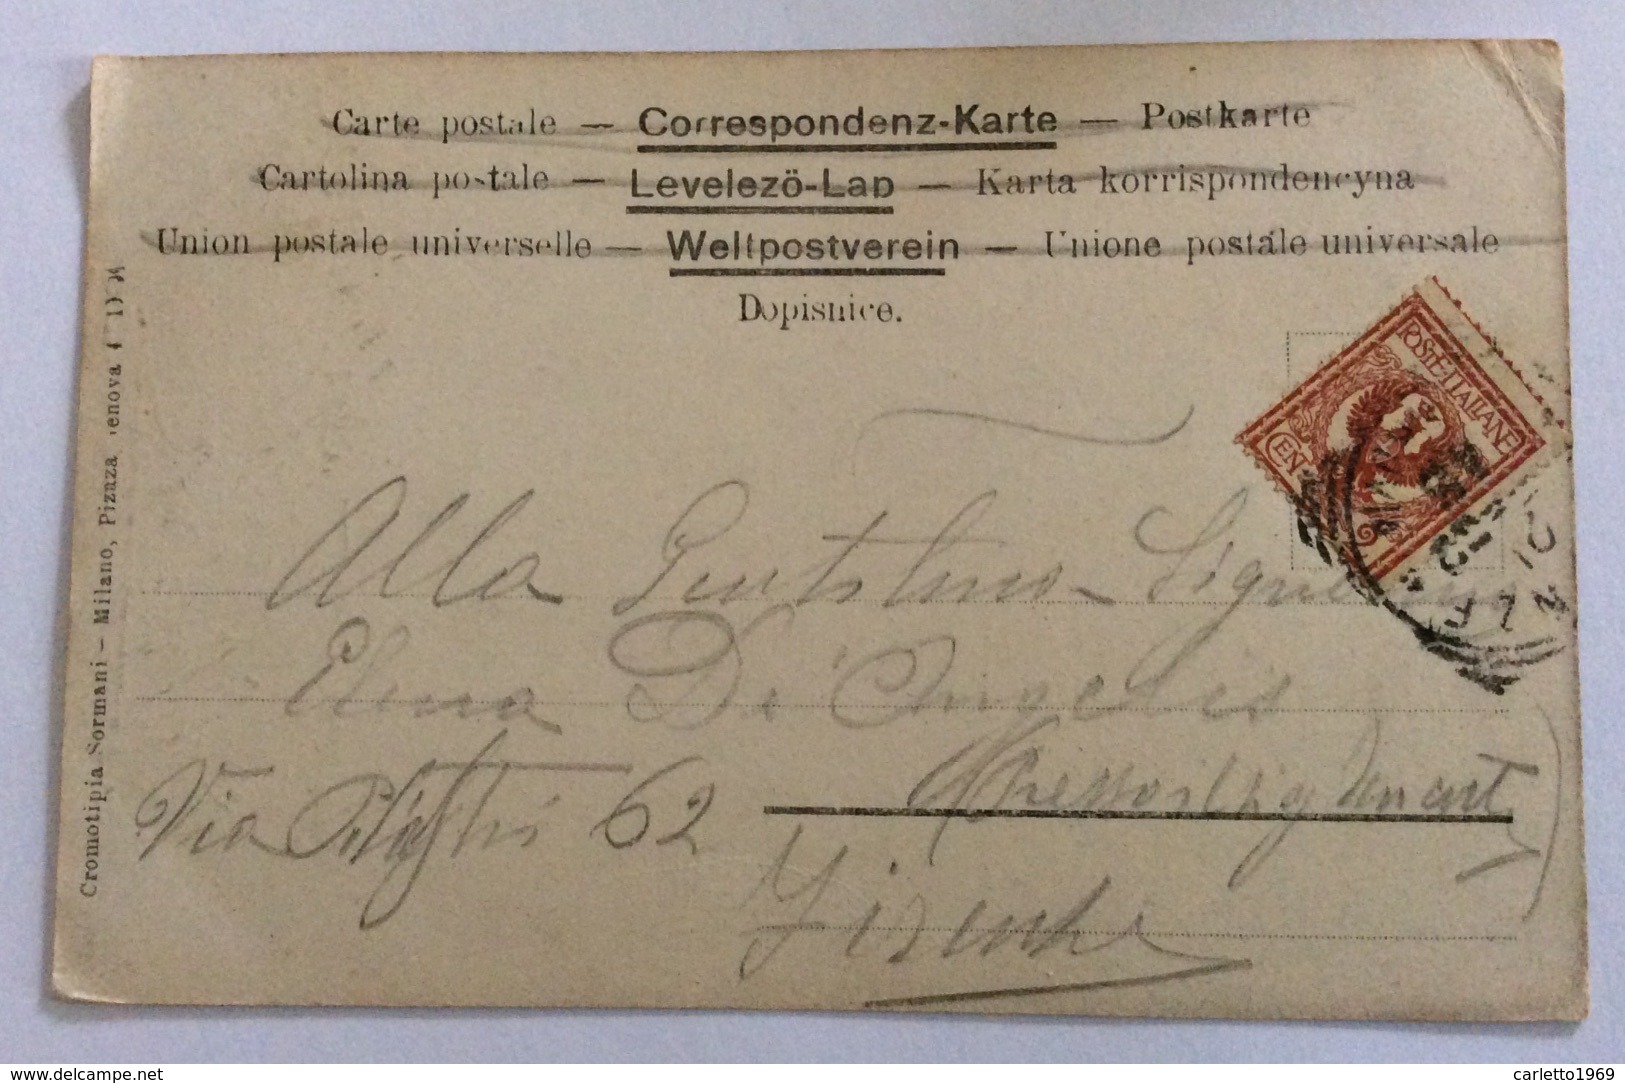 Carte postale — Correspondenz-Karte — Postkarte
Cartolina postale — Levelezö-Lap — Karta korrispondencyna
Union postale universelle — Weltpostverein — Unione postale universale
Dopisnice.
Cromotipia Sormani - Milano, Piazza Genova 4
POSTE ITALIANE
CENT
Alla Gentilma Signorina
Elena De Angelis
Via 62
(Presso i Sigg
Firenze
delcampe.net
carletto1969